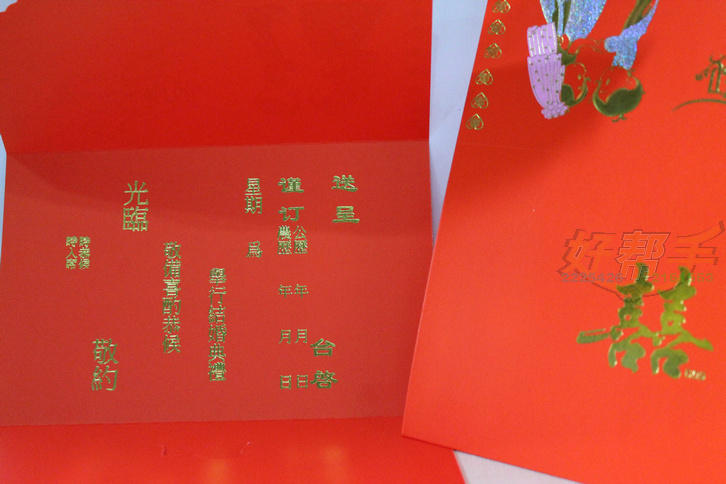 送呈
台啓
謹訂
公歷 年 月 日
農歷 年 月 日
星期 爲
舉行結婚典禮
敬備喜酌恭候
光臨
敬約
時恭候
時入席
囍
好帮手